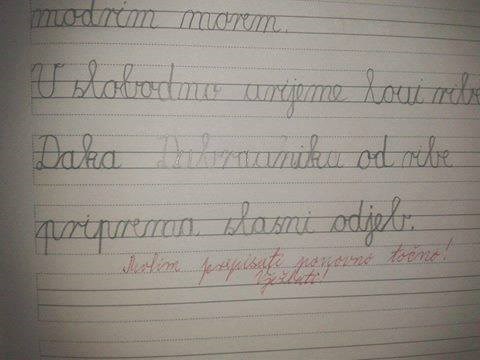 modrim morem.
U slobodno vrijeme lovi ribe
Daka Dubravniku od ribe
priprema slasni odjeb.
Molim prepisati ponovno točno!
Vježbati!